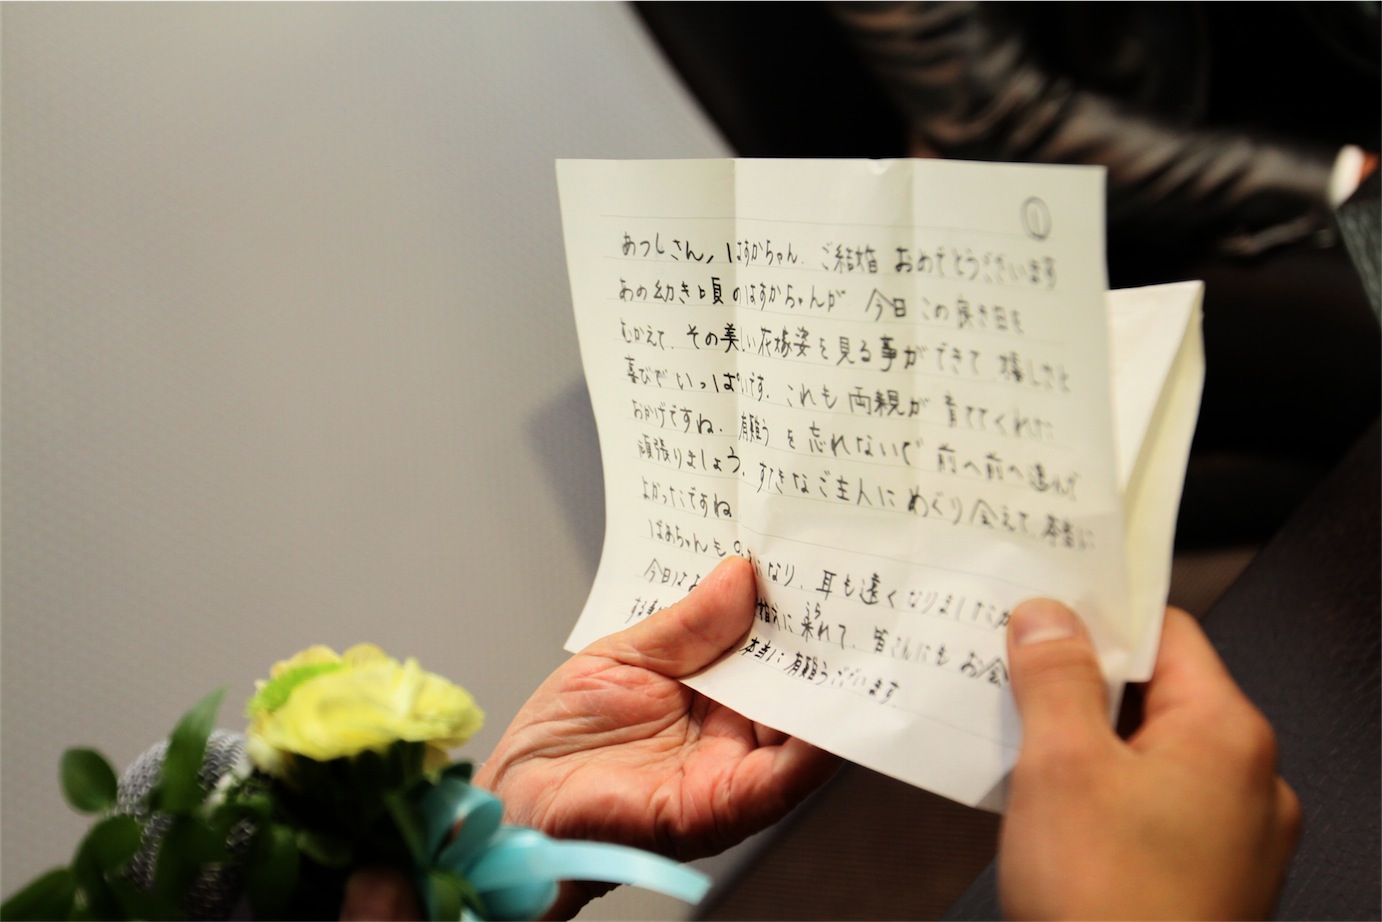 ①
あつしさん、はすかちゃん、ご結婚 おめでとうございます
あの幼き頃のはすかちゃんが 今日 この良き日を
むかえて、その美しい花嫁姿を見る事ができて 嬉しさと
喜びでいっぱいです。これも両親が 育ててくれた
おかげですね、有難うを忘れないで 前へ前へ進んで
頑張りましょう。すてきなご主人にめぐり会えて 本当に
よかったですね
ばあちゃんも になり、耳も遠くなりましたが
今日は 来れて、皆さんにも お会い
うら
する事 本当に有難うございます